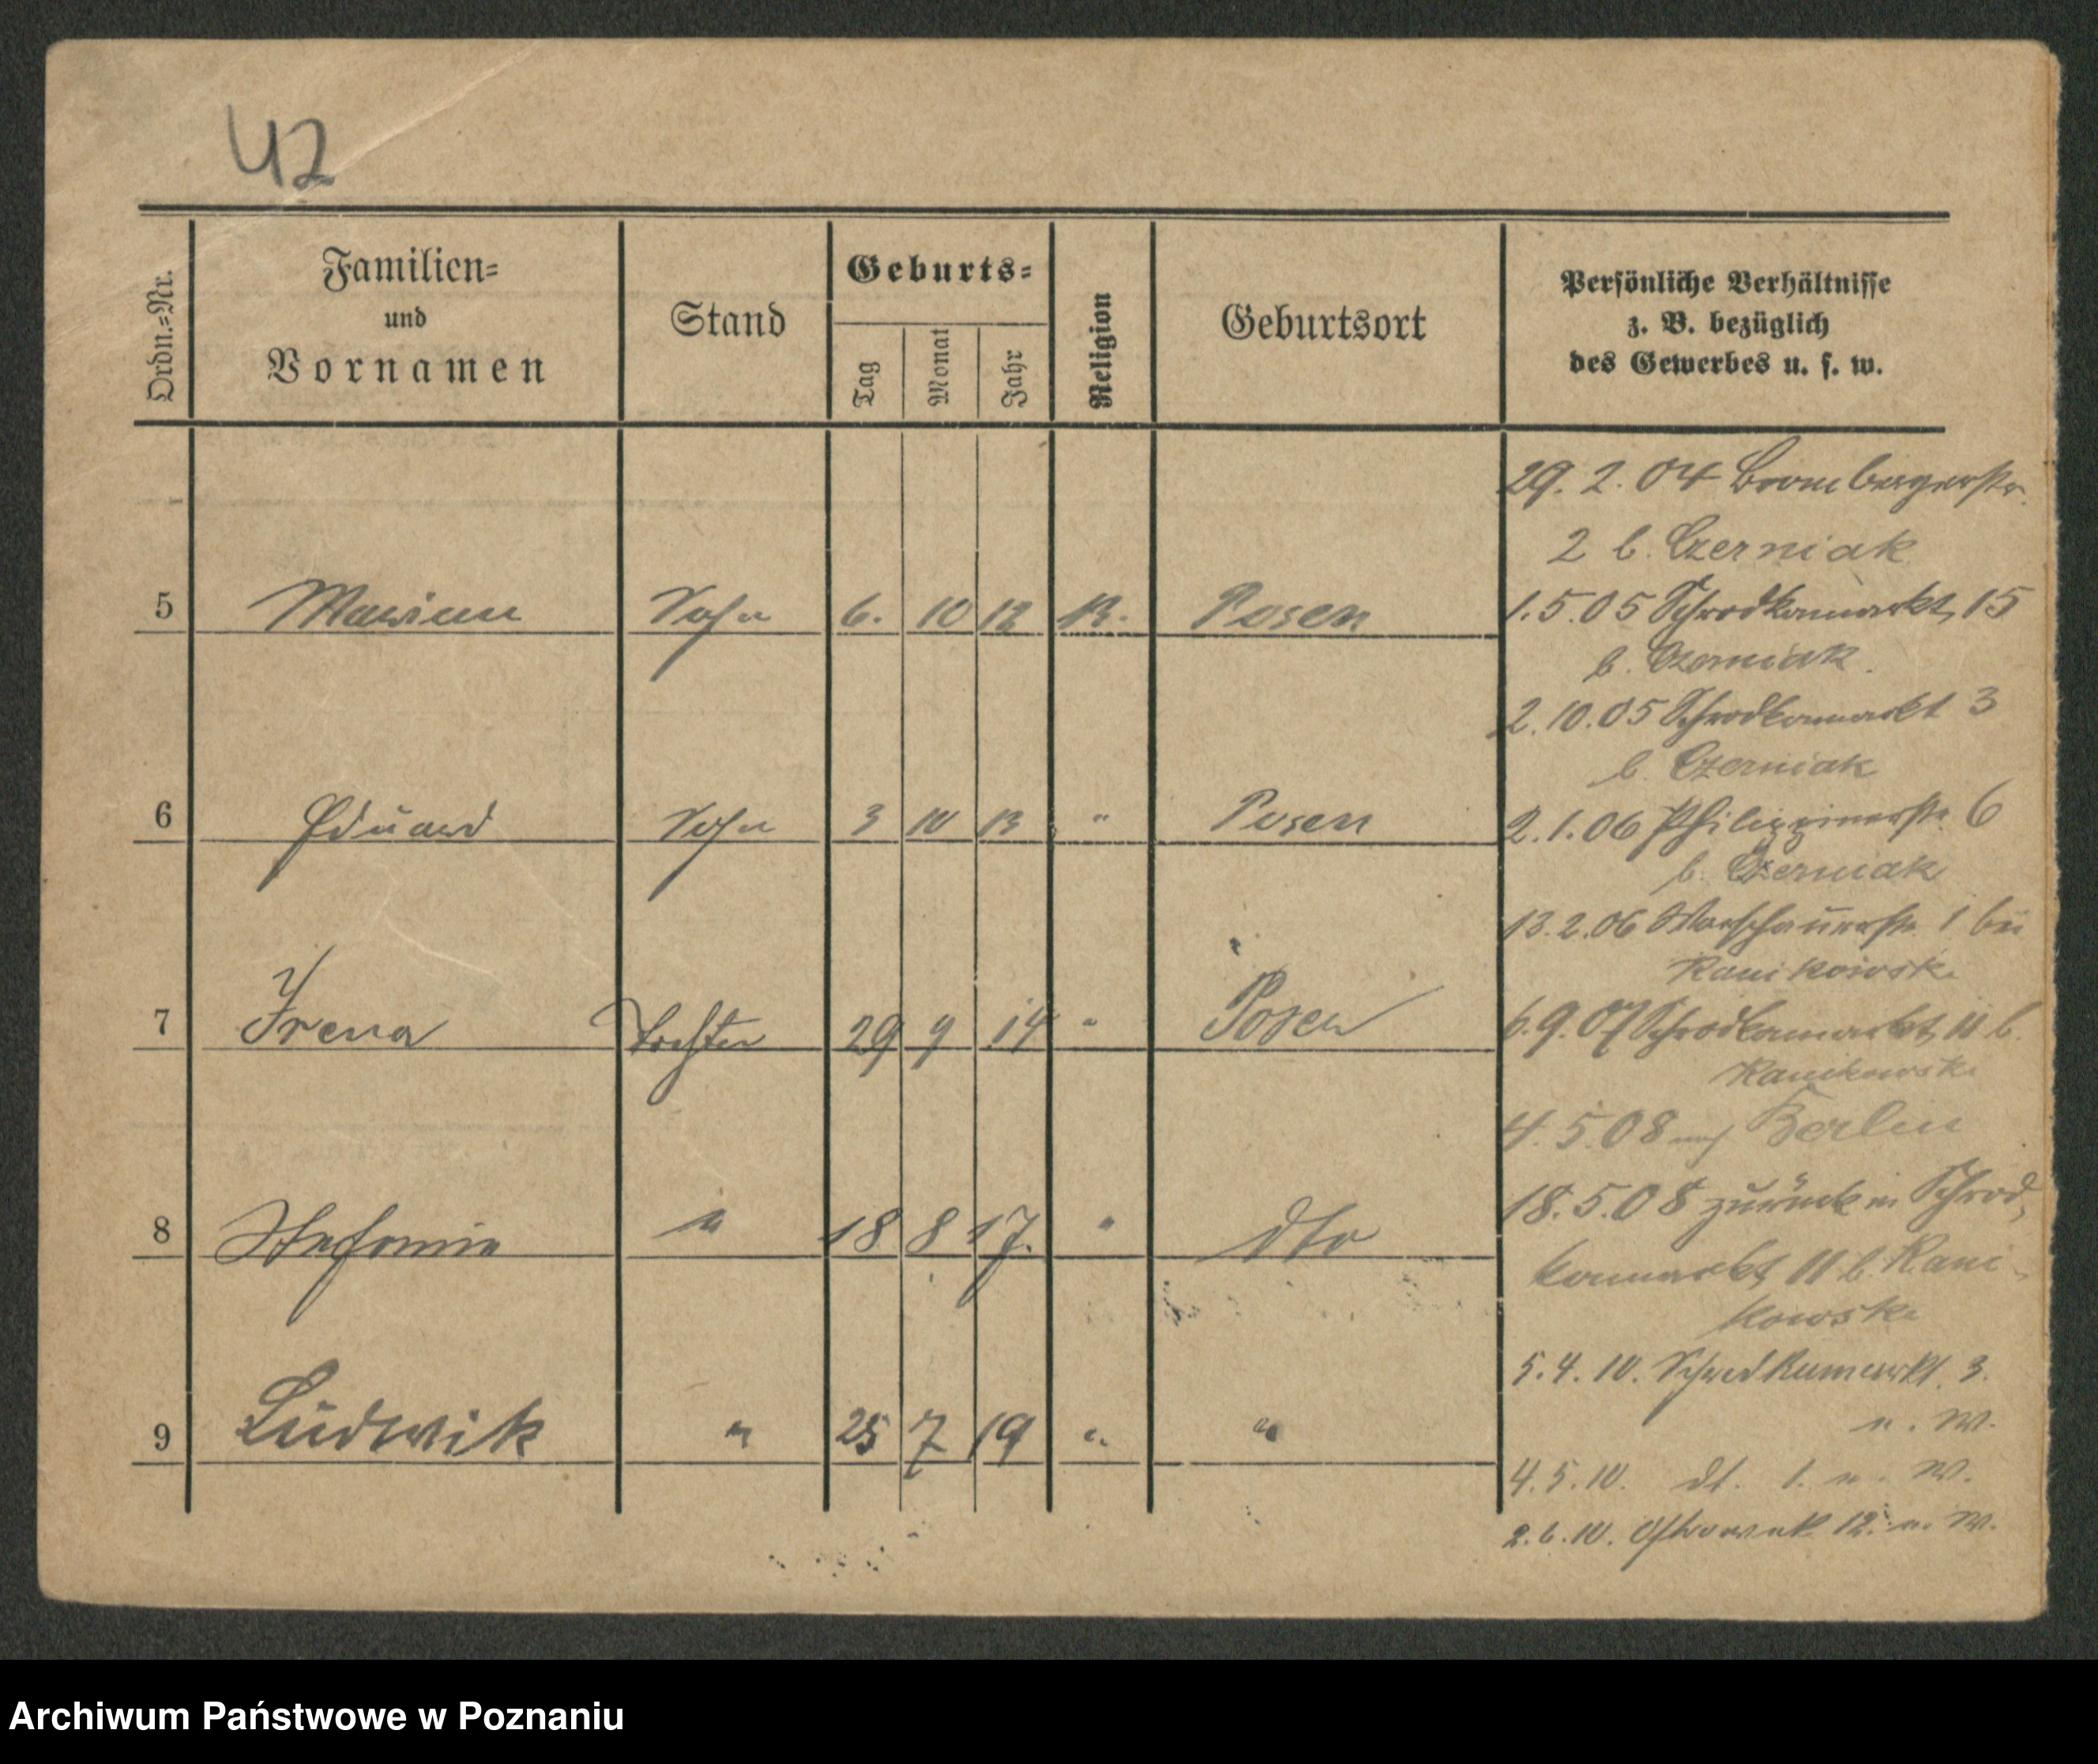 42
Ordn.-Nr.
Familien-
und
Vornamen
Stand
Geburts-
Tag
Monat
Jahr
Religion
Geburtsort
Persönliche Verhältnisse
z. B. bezüglich
des Gewerbes u. s. w.
5 Sohn 6. 10 12 Posen
6 Eduard Sohn 3 10 13 " Posen
7 Irena Tochter 29 9 14 " Posen
8 " 18 8 17. " dto
9 Ludwik " 25 7 19 " "
29. 2. 04 Brombergerstr.
2 b. Czerniak
1. 5. 05 Schrodkamarkt 15
b. Czerniak.
2. 10. 05 Schrodkamarkt 3
b. Czerniak
2. 1. 06 Philippinerstr. 6
b. Czerniak
13. 2. 06 Warschauerstr. 1 bei
Ranikowski
6. 9. 07 Schrodkamarkt 11 b.
Ranikowski
4. 5. 08 nach Berlin
18. 5. 08 zurück in Schrod-
kamarkt 11 b. Rani-
kowski
5. 4. 10. Schrodkamarkt 3.
W.
4. 5. 10. dt. 1. W.
2. 6. 10. 12. W.
Archiwum Państwowe w Poznaniu